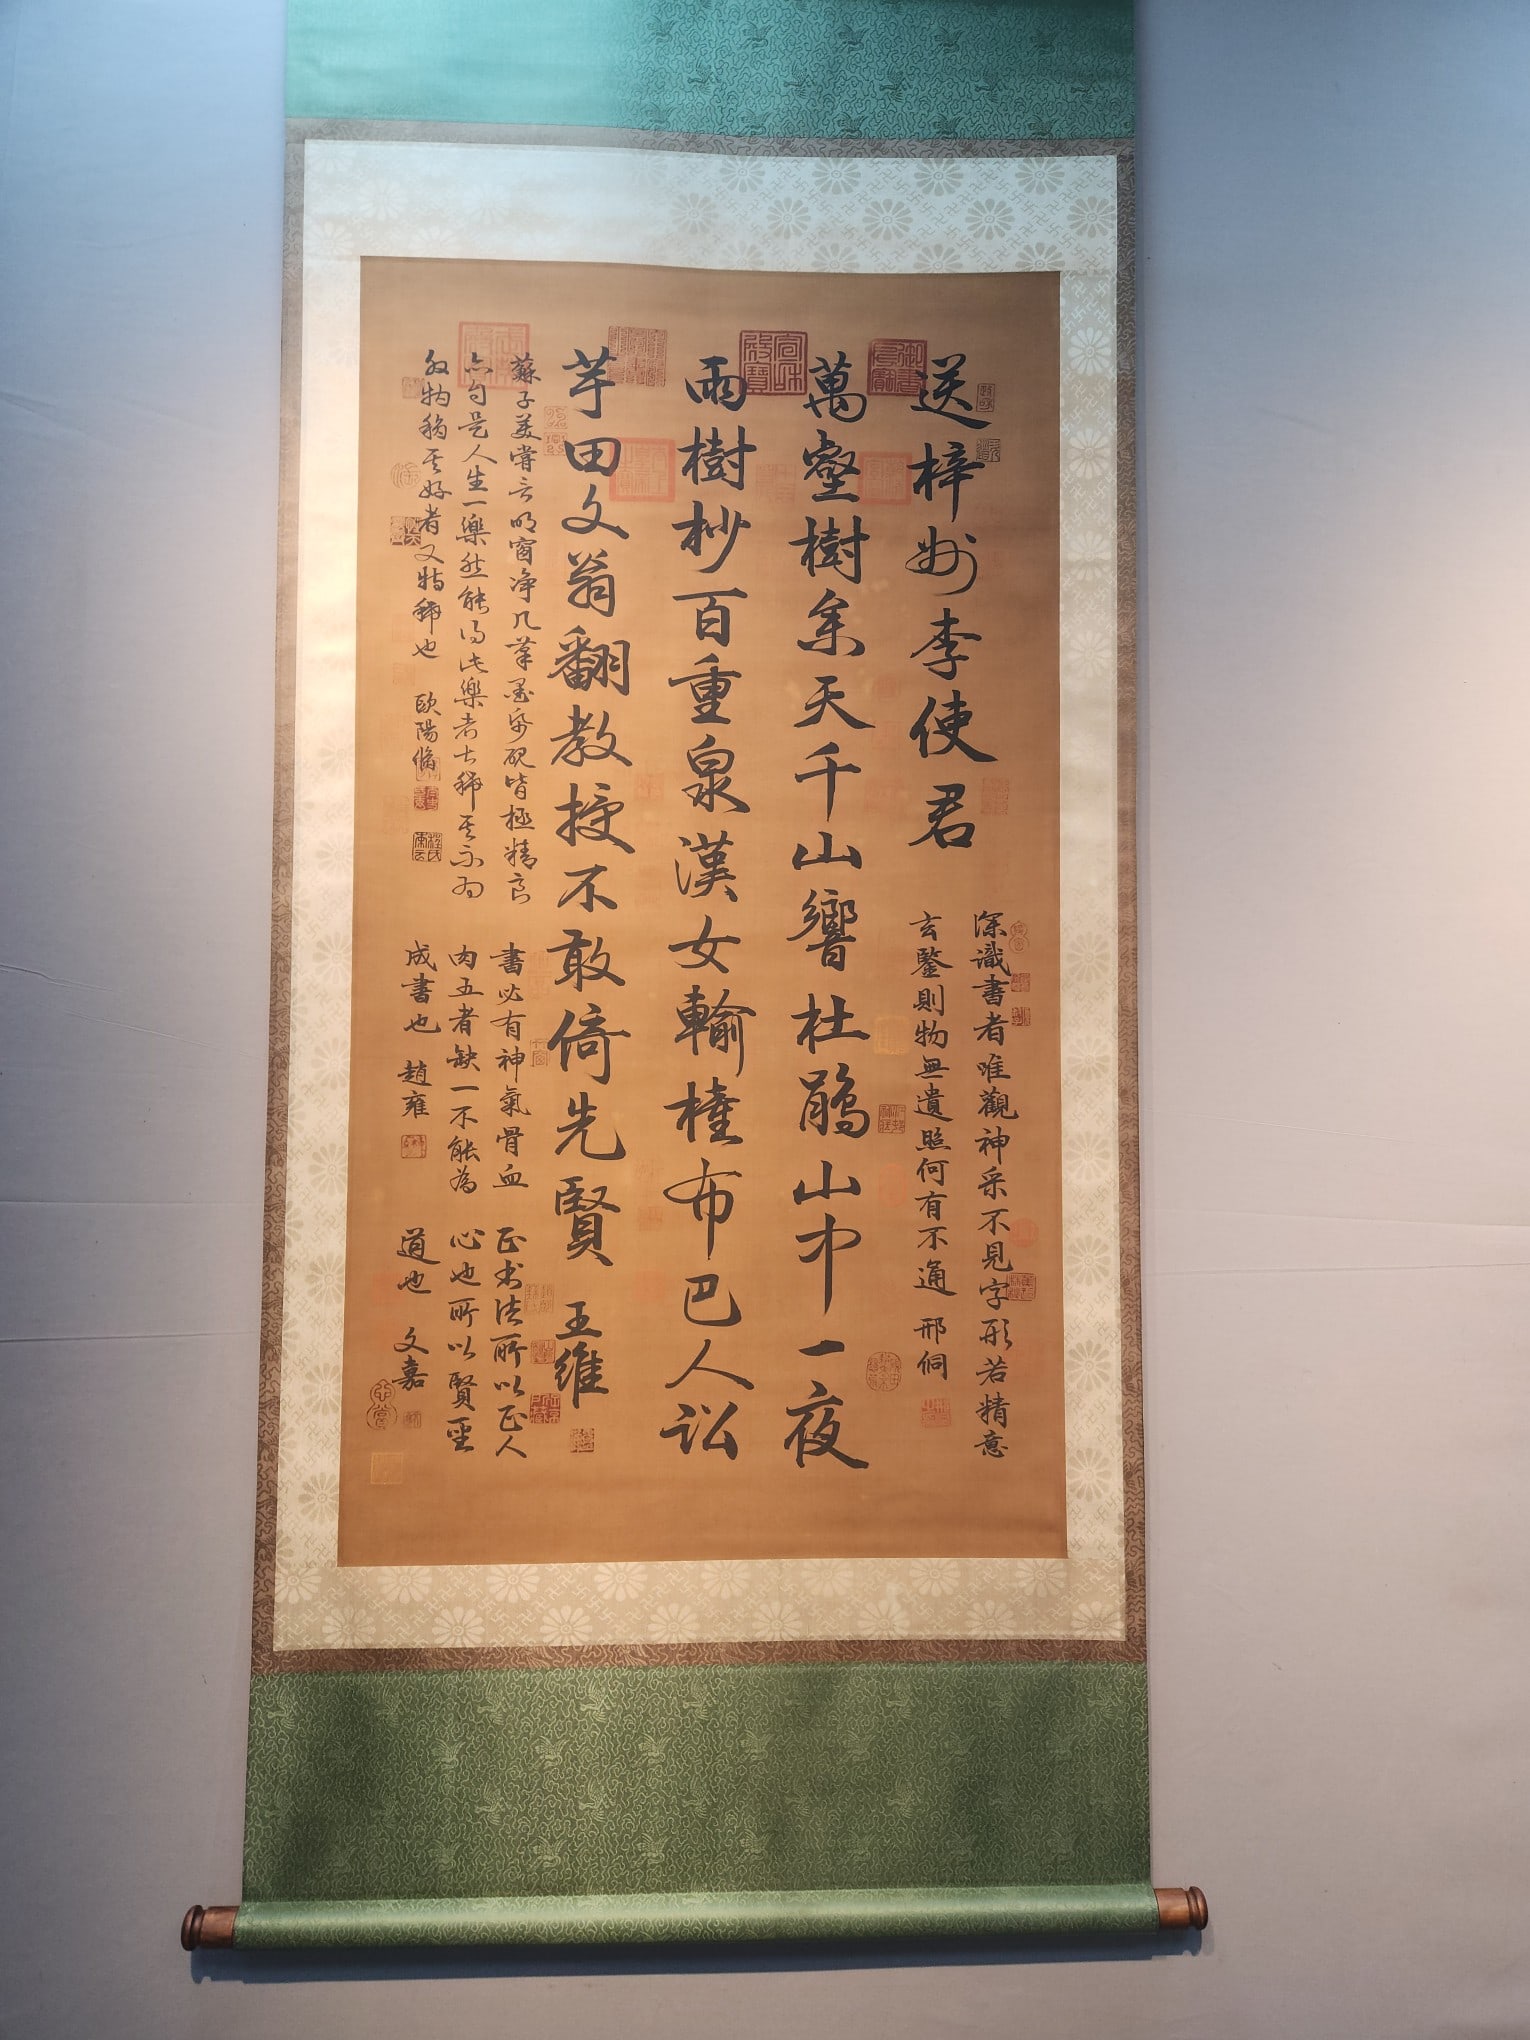 送梓州李使君
深識書者唯觀神采不見字形若精意
玄鑒則物無遺照何有不通 邢侗
萬壑樹參天千山響杜鵑山中一夜
雨樹杪百重泉漢女輸橦布巴人訟
芋田文翁翻教授不敢倚先賢 王維
蘇子美嘗言明窗淨几筆墨紙硯皆極精良
亦自是人生一樂然能得此樂者甚稀其不為
外物移其好者又特稀也 歐陽脩
書必有神氣骨血
肉五者缺一不能為
成書也 趙雍
正書法所以正人
心也所以賢聖
道也 文嘉
宣和
御書